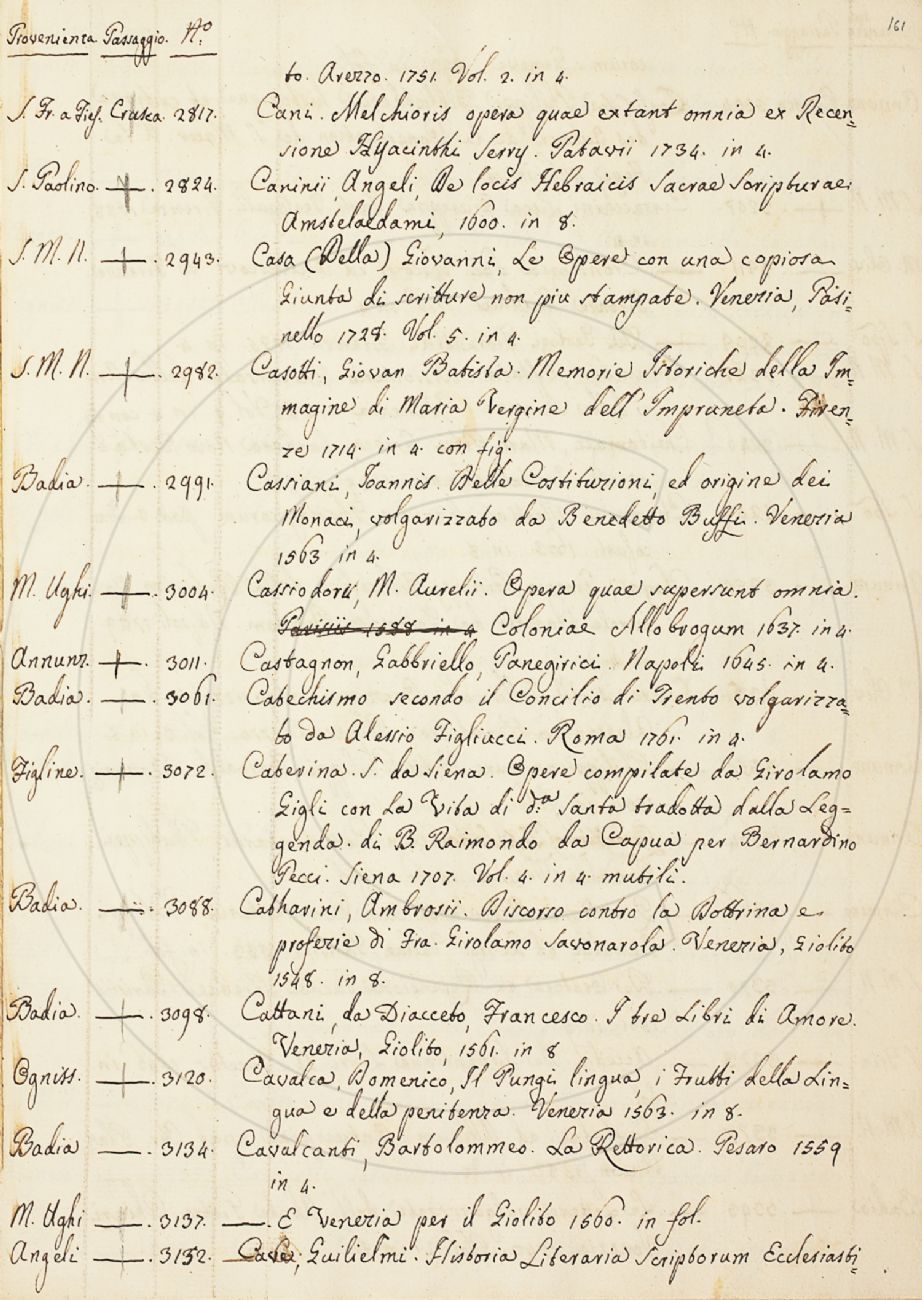 161
Provenienza Passaggio. N.o
to. Arezzo. 1751. Vol. 2. in 4.
S. Fr. a Fies. Crusca. 2817. Cani. Melchioris opera quae extant omnia ex Recen=
sione Hyacinthi Serry. Patavii 1734. in 4.
S. Paolino. 2824. Caninii, Angeli, De locis Hebraicis Sacrae Scripturae.
Amstelaedami, 1600. in 8.
S. M. N. 2943. Casa (Della) Giovanni, Le Opere con una copiosa
Giunta di scritture non piu stampate. Venezia, Pasi=
nello 1728. Vol. 5. in 4.
S. M. N. 2982. Casotti, Giovan Batista. Memorie Istoriche della Im=
magine di Maria Vergine dell' Impruneta. Firen=
ze 1714. in 4. con fig.
Badia. 2991. Cassiani, Joannis. Delle Costituzioni, ed origine dei
Monaci, volgarizzato da Benedetto Buffi. Venezia
1563 in 4.
M. Ughi. 3004. Cassiodorii, M. Aurelii. Opera quae supersunt omnia.
Parisiis 1588 in 4 Coloniae Allobrogum 1637. in 4.
Annunz. 3011. Castagnon, Gabbriello, Panegirici. Napoli 1645. in 4.
Badia. 3061. Catechismo secondo il Concilio di Trento volgarizza=
to da Alessio Figliucci. Roma 1761. in 4.
Figline. 3072. Caterina. S. da Siena. Opere compilate da Girolamo
Gigli con La Vita di d.a Santa tradotta dalla Leg=
genda. di B. Raimondo da Capua per Bernardino
Pecci. Siena 1707. Vol. 4. in 4. mutili.
Badia. 3088. Catharini, Ambrosii. Discorso contro la Dottrina e
profezie di Fra. Girolamo Savonarola. Venezia, Giolito
1548. in 8.
Badia. 3098. Cattani, da Diacceto, Francesco. I tre Libri di Amore.
Venezia, Giolito, 1561. in 8
Ogniss. 3120. Cavalca, Domenico, Il Pungi lingua, i Frutti della Lin=
gua e della penitenza. Venezia 1563. in 8.
Badia 3134. Cavalcanti, Bartolommeo. La Rettorica. Pesaro 1559
in 4.
M. Ughi 3137. E Venezia per il Giolito 1560. in fol.
Angeli 3152. Cave, Guilielmi. Historia Literaria Scriptorum Ecclesiasti=